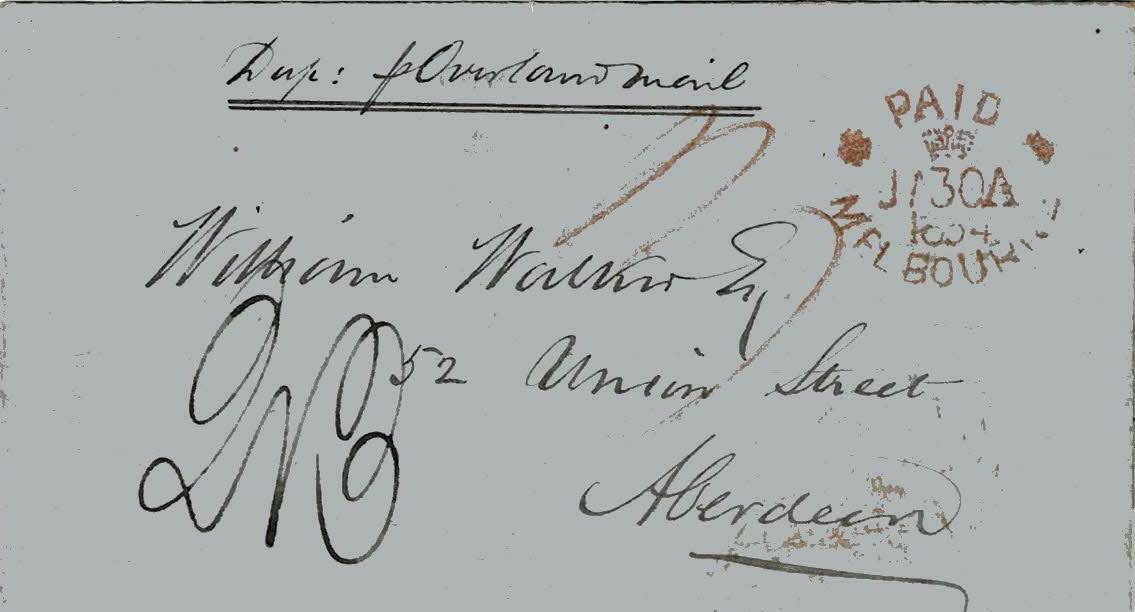 Dup: p Overland Mail
PAID
JY 30 A
1854
MELBOURNE
William Walker Esq
52 Union Street
Aberdeen